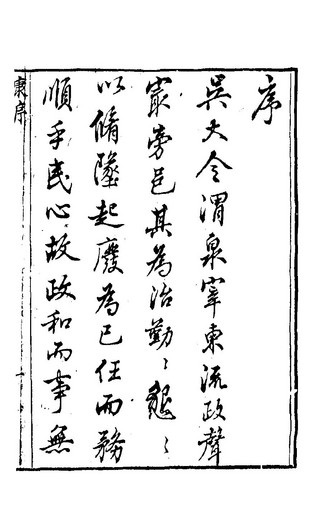 序
吳大令渭泉宰東流政聲
冣旁邑其為治勤〻懇〻
以脩墜起廢為己任而務
順乎民心故政和而事無
東序
一